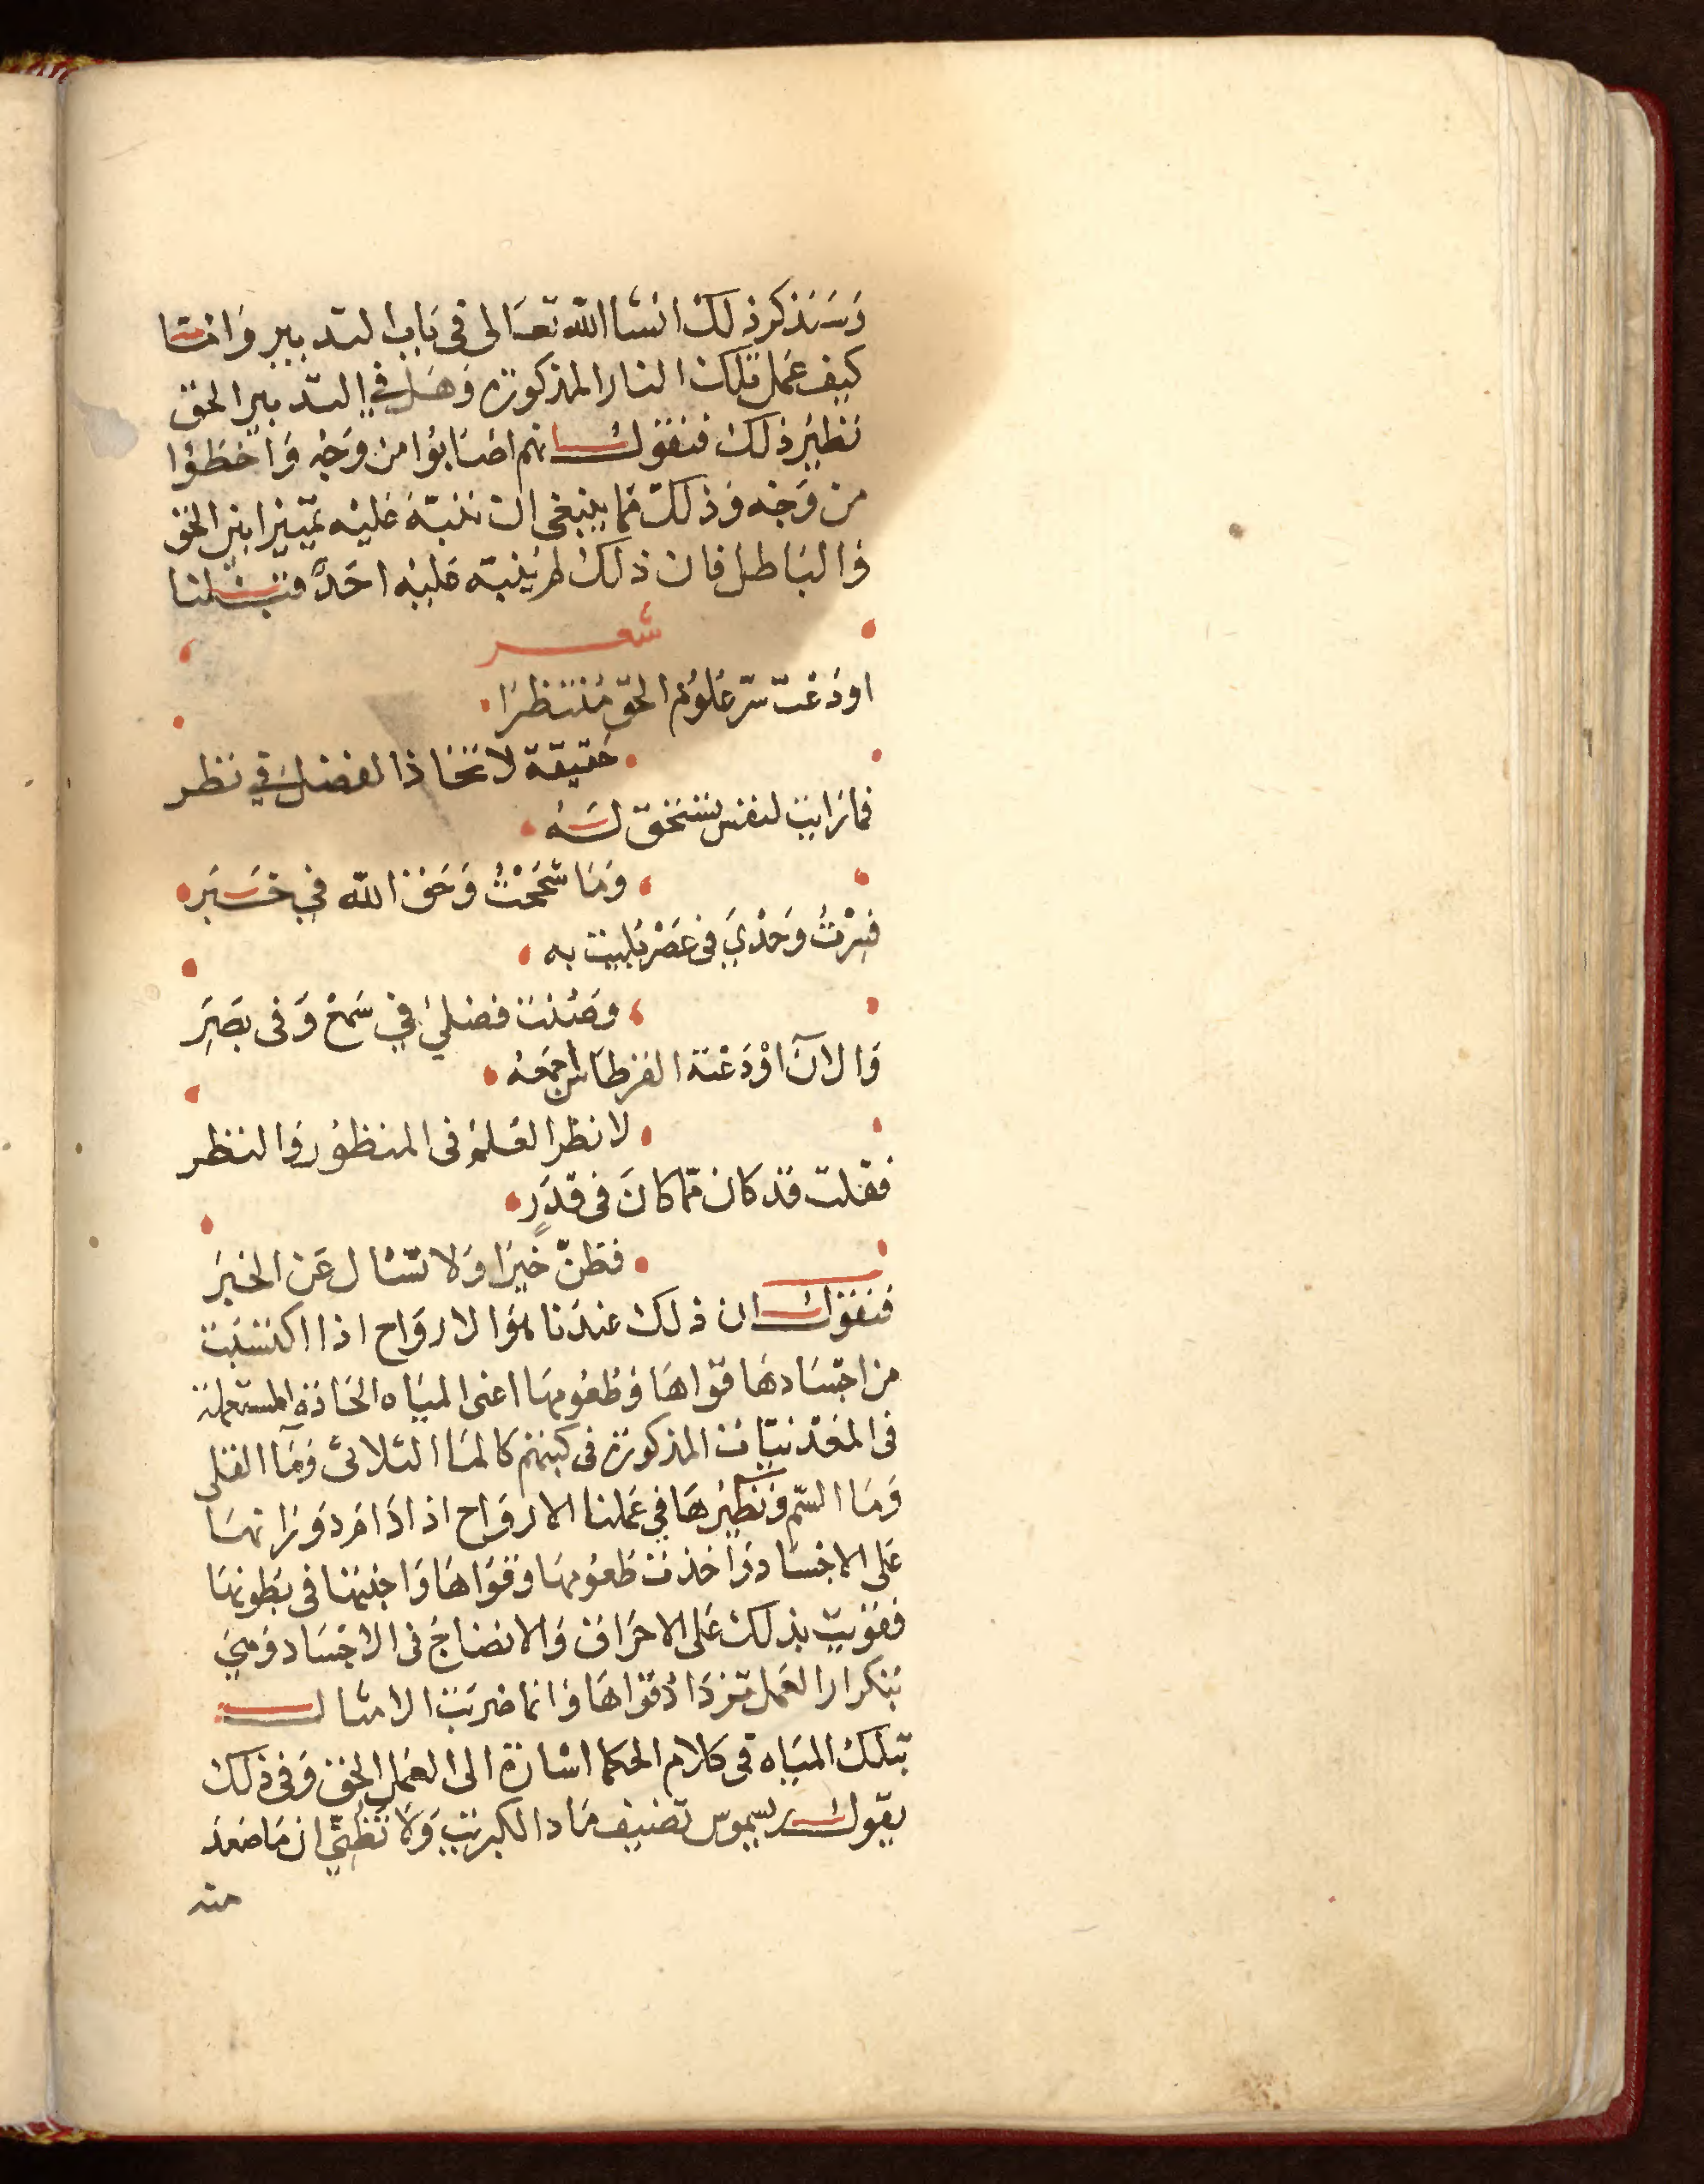 وَسَنَذكر ذلك انشا الله تعَالى فى بَاب التدبير وَامّا
كيف عمَل تلك النار المذكورة وَهَل في التدبير الحق
نظير ذلك فنقول انهم اصَابُوا من وَجْه وَاخطؤا
من وَجْه وَذلك مما ينبغى ان ننبّه عَليْه تمييزا بين الحق
وَالبَاطل فان ذلك لم ينبّه عَليْه احَدٌ قبلنا
شعر
اودَعت سرّ عُلوُم الحق مُنتظرًا
حَقيقة لا تخَاذا لفضل في نظر
فما رَايت لنفس تستحق لَهُ
وَمَا سَمَحْتُ وَحَق الله في خَبَر
فسِرْتُ وَحْدي في عَصْر بُليت به
وصُنْت فضلي في سَمعْ وَفى بصَرِ
وَالانَ اوْدَعْتهُ القرطاس اجمَعهُ
لا نظر العُلمُ فى المنظوُر وَالنظر
فقلت قد كان مما كانَ فى قدَرٍ
فظنّ خيرًا وَلا تسْال عَن الخبَرِ
فنقول ان ذلك عندَنا هوَ الارواح اذا اكتسَبَت
من اجسَادهَا قوَاهَا وَطعُومهَا اعنى الميَاه الحَادَة المستعملة
فى المعْدنيّات المذكورة فى كتبهم كالمَا الثلاثى وَمآ القلى
وَمَا السّم وَنظيرهَا في عَملنا الارواح اذا دَامَ دوَرَانهَا
عَلى الاجسَاد وَاخذت طعُومهَا وَقوَاهَا وَاجنتهَا فى بطونهَا
فقوَيت بذلك عَلى الاحرَاق وَالانضاج فى الاجسَاد وَهي
بتكرار العَمل تزدَاد قوَاهَا وَانما ضربَت الامثال
بتلك الميَاه فى كلام الحكما اشارة الى العَمل الحق وَفى ذلك
يقول رسيموس تصنيف مَاد الكبريت وَلا تظنّى ان مَا صَعد
منه